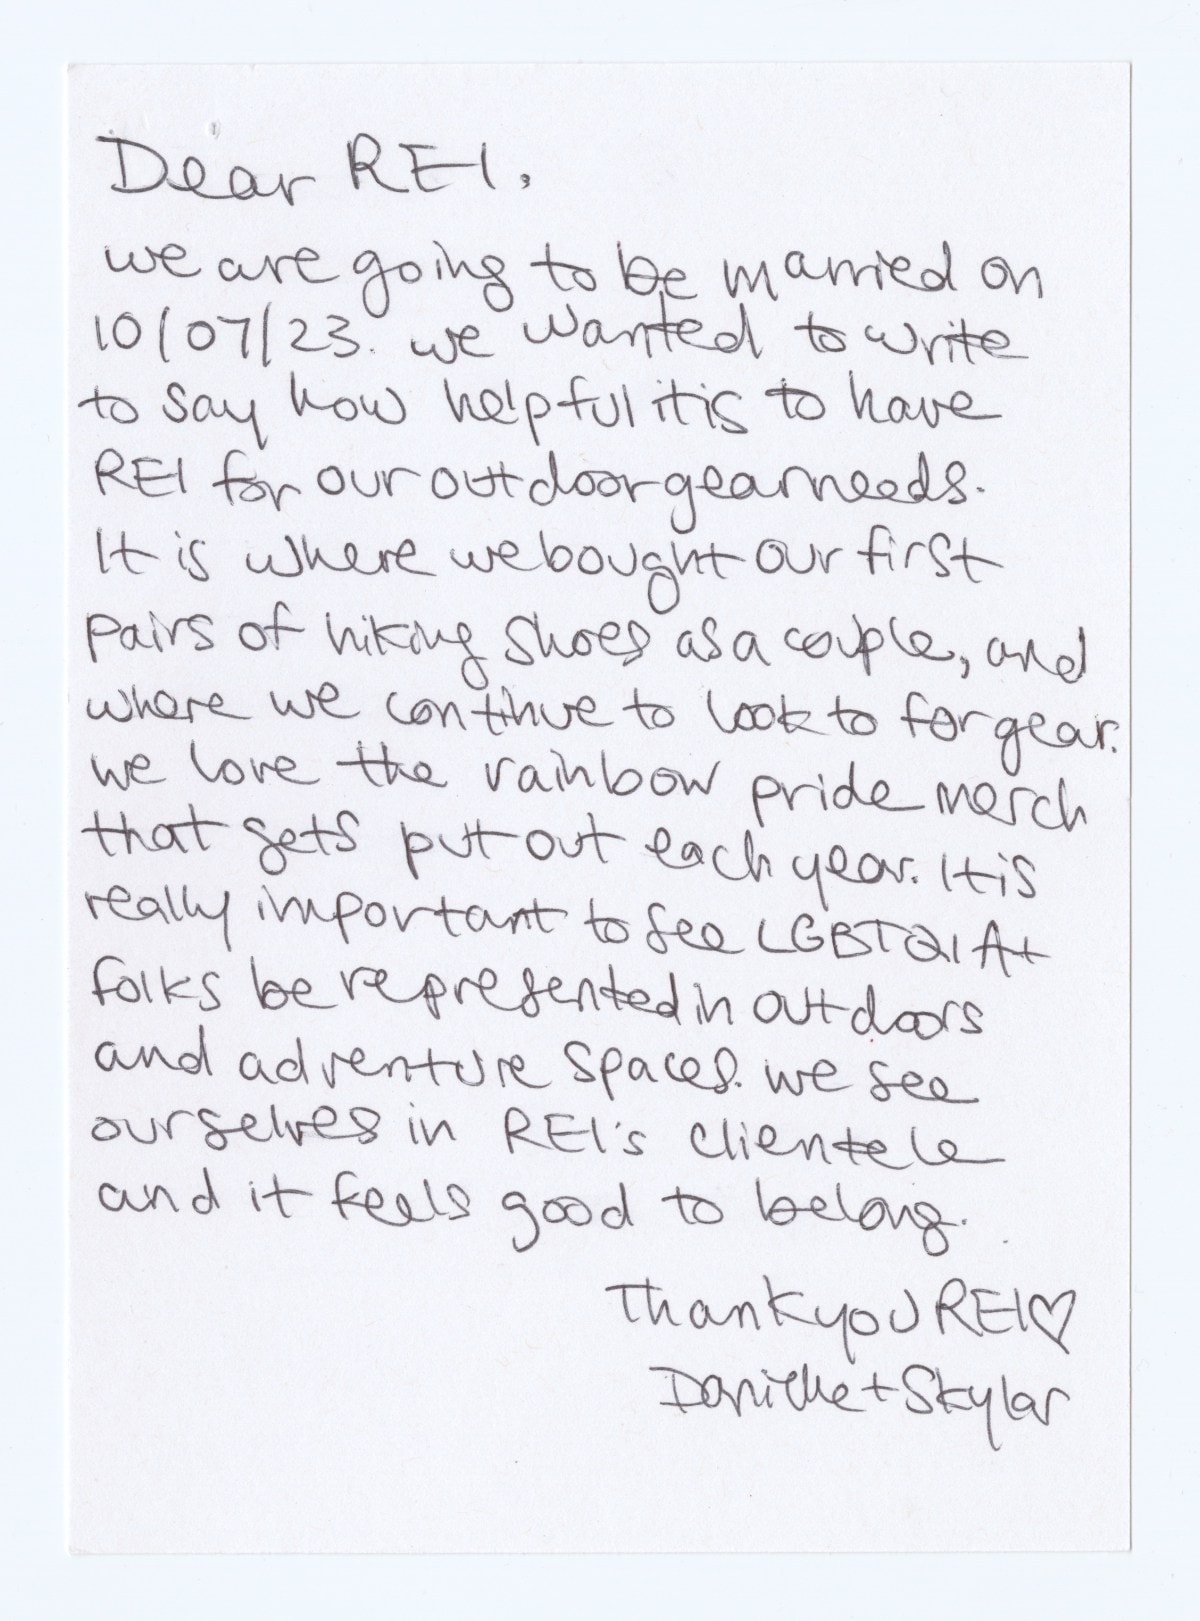 Dear REI,
we are going to be married on
10/07/23. we wanted to write
to say how helpful it is to have
REI for our outdoor gear needs.
It is where we bought our first
pairs of hiking shoes as a couple, and
where we continue to look to for gear.
we love the rainbow pride merch
that gets put out each year. It is
really important to see LGBTQIA+
folks be represented in outdoors
and adventure spaces. we see
ourselves in REI's clientele
and it feels good to belong.
Thank you REI♡
Danielle + Skylar